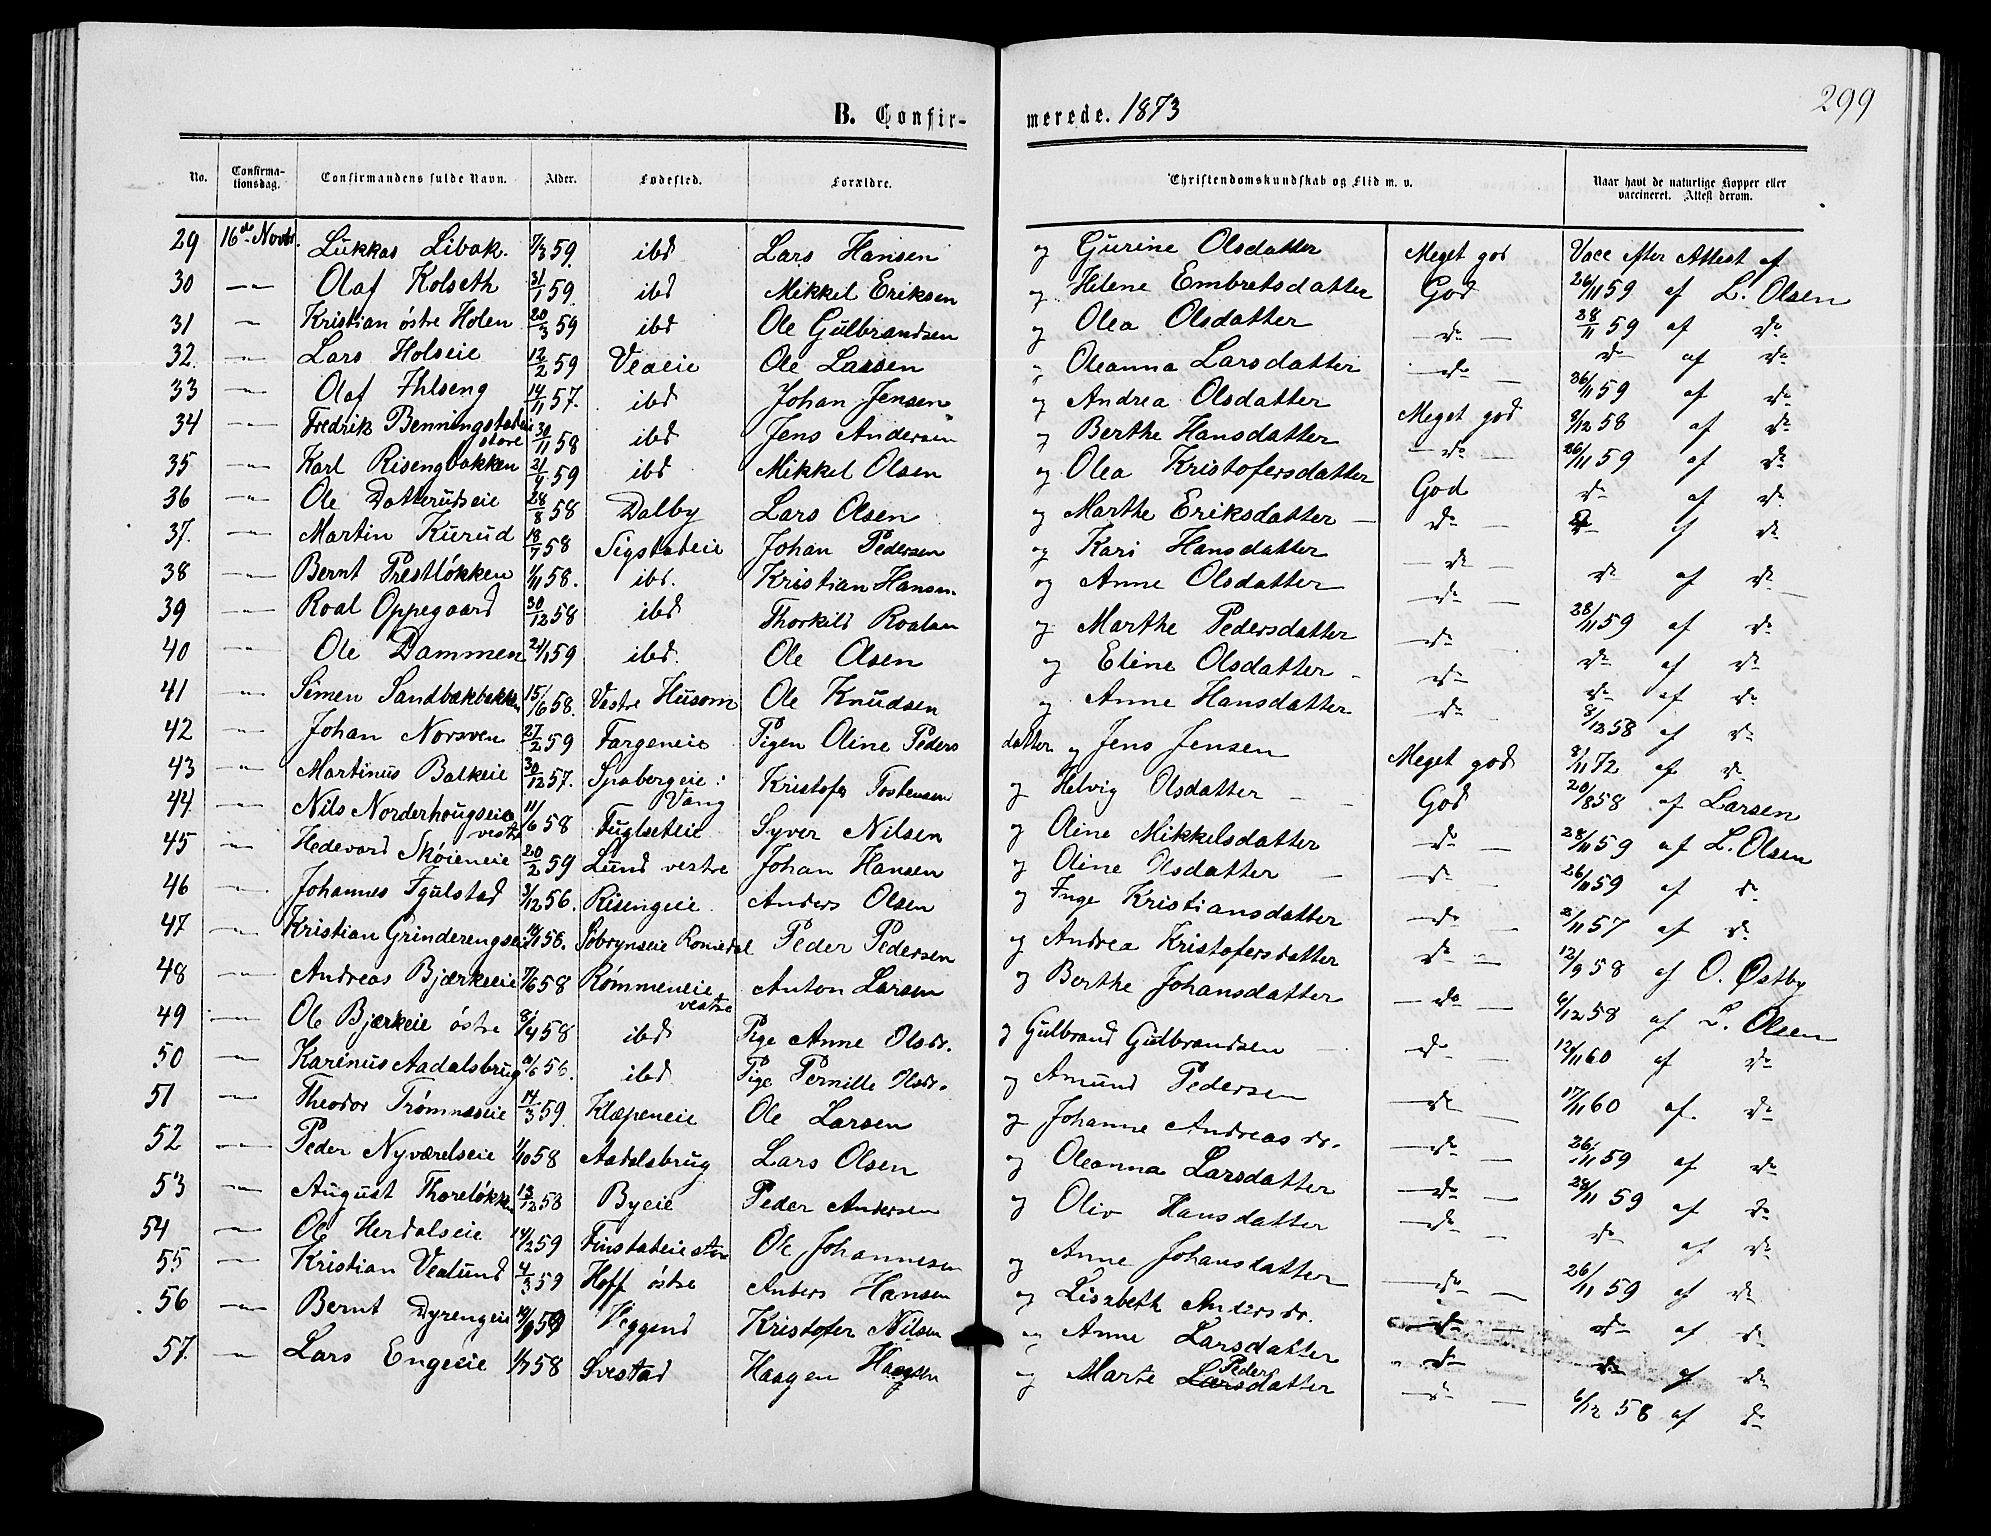 299
B. Confirmerede. 1873
No. Confirmationsdag. Confirmandens fulde Navn. Alder. Fødested. Forældre. Christendomskundskab og Flid m. v. Naar havt de naturlige Kopper eller vaccineret. Attest derom.
29 16de Novbr. Lukkas Libak. 7/3 59. ibd Lars Hansen og Gurine Olsdatter Meget god Vacc efter Attest af
30 —"— Olaf Kolseth 31/1 59. ibd Mikkel Eriksen og Helene Embretsdatter God 26/11 59 af L. Olsen
31 —"— Kristian østre Holen 20/3 59 ibd Ole Gulbrandsen og Olea Olsdatter —do— 28/11 59 af do
32. —"— Lars Holseie 12/2 59 Veaeie Ole Larsen og Oleanna Larsdatter —do— do af do
33 —"— Olaf Ihlseng 14/11 57. ibd Johan Jensen og Andrea Olsdatter Meget god 26/11 59 af do
34 —"— Fredrik Benningstadeie store 30/11 58 ibd Jens Andersen og Berthe Hansdatter —do— 8/12 58 af do
35 —"— Karl Risengbakken 21/4 59 ibd Mikkel Olsen og Olea Kristofersdatter God 26/11 59 af do
36 —"— Ole Dotterudseie 28/8 58 Dalby Lars Olsen og Marthe Eriksdatter — do — do af do
37. —"— Martin Kurud 18/7 58 Sigstadeie Johan Pedersen og Kari Hansdatter —do— do af do
38 —"— Bernt Prestløkken 1/11 58. ibd. Kristian Hansen. og Anne Olsdatter —do— do af do
39 —"— Roal Oppegaard 30/12 58 ibd Thorkild Roalsen og Marthe Pedersdatter —do— 28/11 59 af do
40 —"— Ole Dammen 21/1 59 ibd. Ole Olsen og Eline Olsdatter —do— do af do
41 —"— Simen Sandbækbakken 15/6 58. Vestre Husom Ole Knudsen og Anne Hansdatter —do— do af do
42 —"— Johan Norsven 27/2 59 Fargeneie Pigen Oline Pedersdatter og Jens Jensen Meget god 8/12 58 af do
43 —"— Martinus Balkeie 30/12 57. Spabergeie : Vang Kristofer Tostensen og Helvig Olsdatter God 8/11 72 af do
44 —"— Nils Norderhougseie vestre 11/6 58 Fuglseteie Syver Nilsen og Oline Mikkelsdatter —do— 20/8 58 af Larsen
45 —"— Hedevard Skøieneie 20/2 59 Lund vestre Johan Hansen og Oline Olsdatter —do— 28/11 59 af L. Olsen
46 —"— Johannes Fgulstad 3/12 56. Risengeie Anders Olsen og Inge Kristiansdatter —do— 26/11 59 af do
47 —"— Kristian Grinderengseie 56. Sobrynseie Romedal Peder Pedersen og Andrea Kristofersdatter do — 8/11 57 af do
48 —"— Andreas Bjærkeeie 7/6 58 Rømmeneie vestre Anton Larsen og Berthe Johansdatter —do— 12/9 58 af O. Østby
49 —"— Ole Bjærkeie østre 8/4 58 ibd Pige Anne Olsdr. og Gulbrand Gulbrandsen do — 6/12 58 af L. Olsen
50 —"— Karinus Aadalsbrug 56. ibd Pige Pernille Olsdr. og Amund Pedersen —do— 12/11 60 af do
51 —"— Theodor Trømnæseie 14/3 59. Klæpeneie Ole Larsen og Johanne Andreasdr. —do— 17/11 60 af. do
52 —"— Peder Nyværelseie 1/10 58 Aadalsbrug Lars Olsen og Oleanna Larsdatter —do— 26/11 59 af do
53 —"— August Thoreløkken 13/12 58 Byeie Peder Andersen og Oliv Hansdatter —do— 28/11 59 af do
54 —"— Ole Herdalseie 14/2 59 Finstadeie store Ole Johannesen og Anne Johansdatter —do— do af do
55 —"— Kristian Vealund 4/3 59 Hoff østre Anders Hansen og Lisabeth Andersdr. —do— 26/11 59 af do
56 —"— Bernt Dyrengeie Veggend Kristofer Nilsen og Anne Larsdatter —do— do af do
57. —"— Lars Engeeie 1/7 58 Svestad Haagen Haagen og Marte Larsdatter Peder —do— 6/12 58 af do